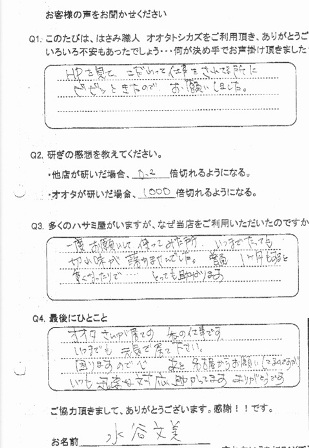 お客様の声をお聞かせください
Q1. このたびは、はさみ職人 オオタトシカズをご利用頂き、ありがとうご
いろいろ不安もあったでしょう・・・何が決め手でお声掛け頂きました
HPを見て こだわって仕事をされてる所に
お願いしました。
Q2. 研ぎの感想を教えてください。
・他店が研いだ場合、0.2 倍切れるようになる。
・オオタが研いだ場合、1000 倍切れるようになる。
Q3. 多くのハサミ屋がいますが、なぜ当店をご利用いただいたのですか
一度お願いして 使ってみた所、いつまでたっても
切れ味が 落ちませんでした。 1ヶ月もすると
とっても助かります
Q4. 最後にひとこと
オオタさんが居ての 私の仕事です
いつまでも 元気で居て下さい。
困りますので
いつも 助かってます ありがとうです
ご協力頂きまして、ありがとうございます。感謝！！です。
お名前 水谷文美